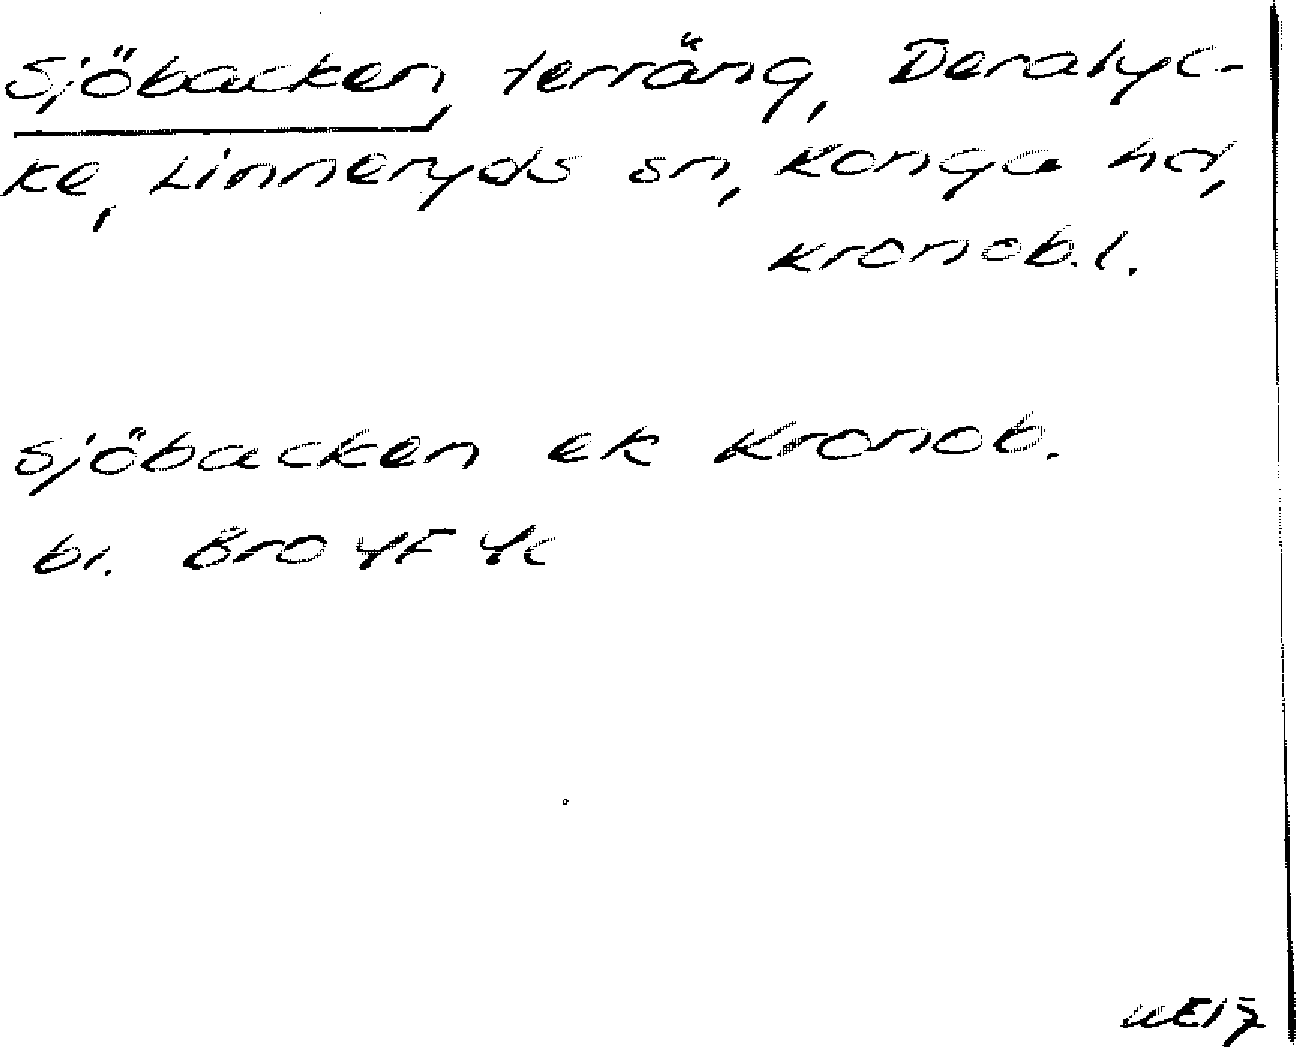 Sjöbacken, terräng, Deralyc-
ke, Linneryds sn, Konga hd,
Kronob. l.
Sjöbacken ek Kronob.
bl. Bro 4F 4c